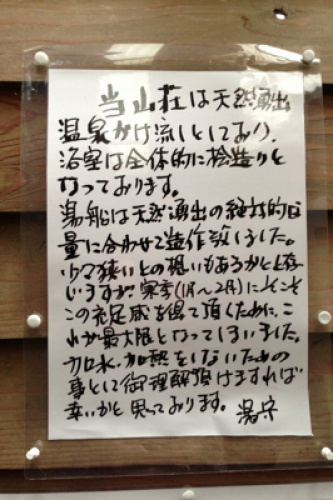 当山荘は天然湧出
温泉かけ流しとしており、
浴室は全体的に桧造りと
なっております。
湯船は天然湧出の絶対的
量に合わせて造作致しました。
少々狭いとの想いもあるかと存
じますが、寒季(1月〜2月)にこそ
この充足感を得て頂くために、こ
れが最大限となってしまいました。
加水、加熱をしないための
事として御理解頂けますれば
幸いかと思っております。 湯守